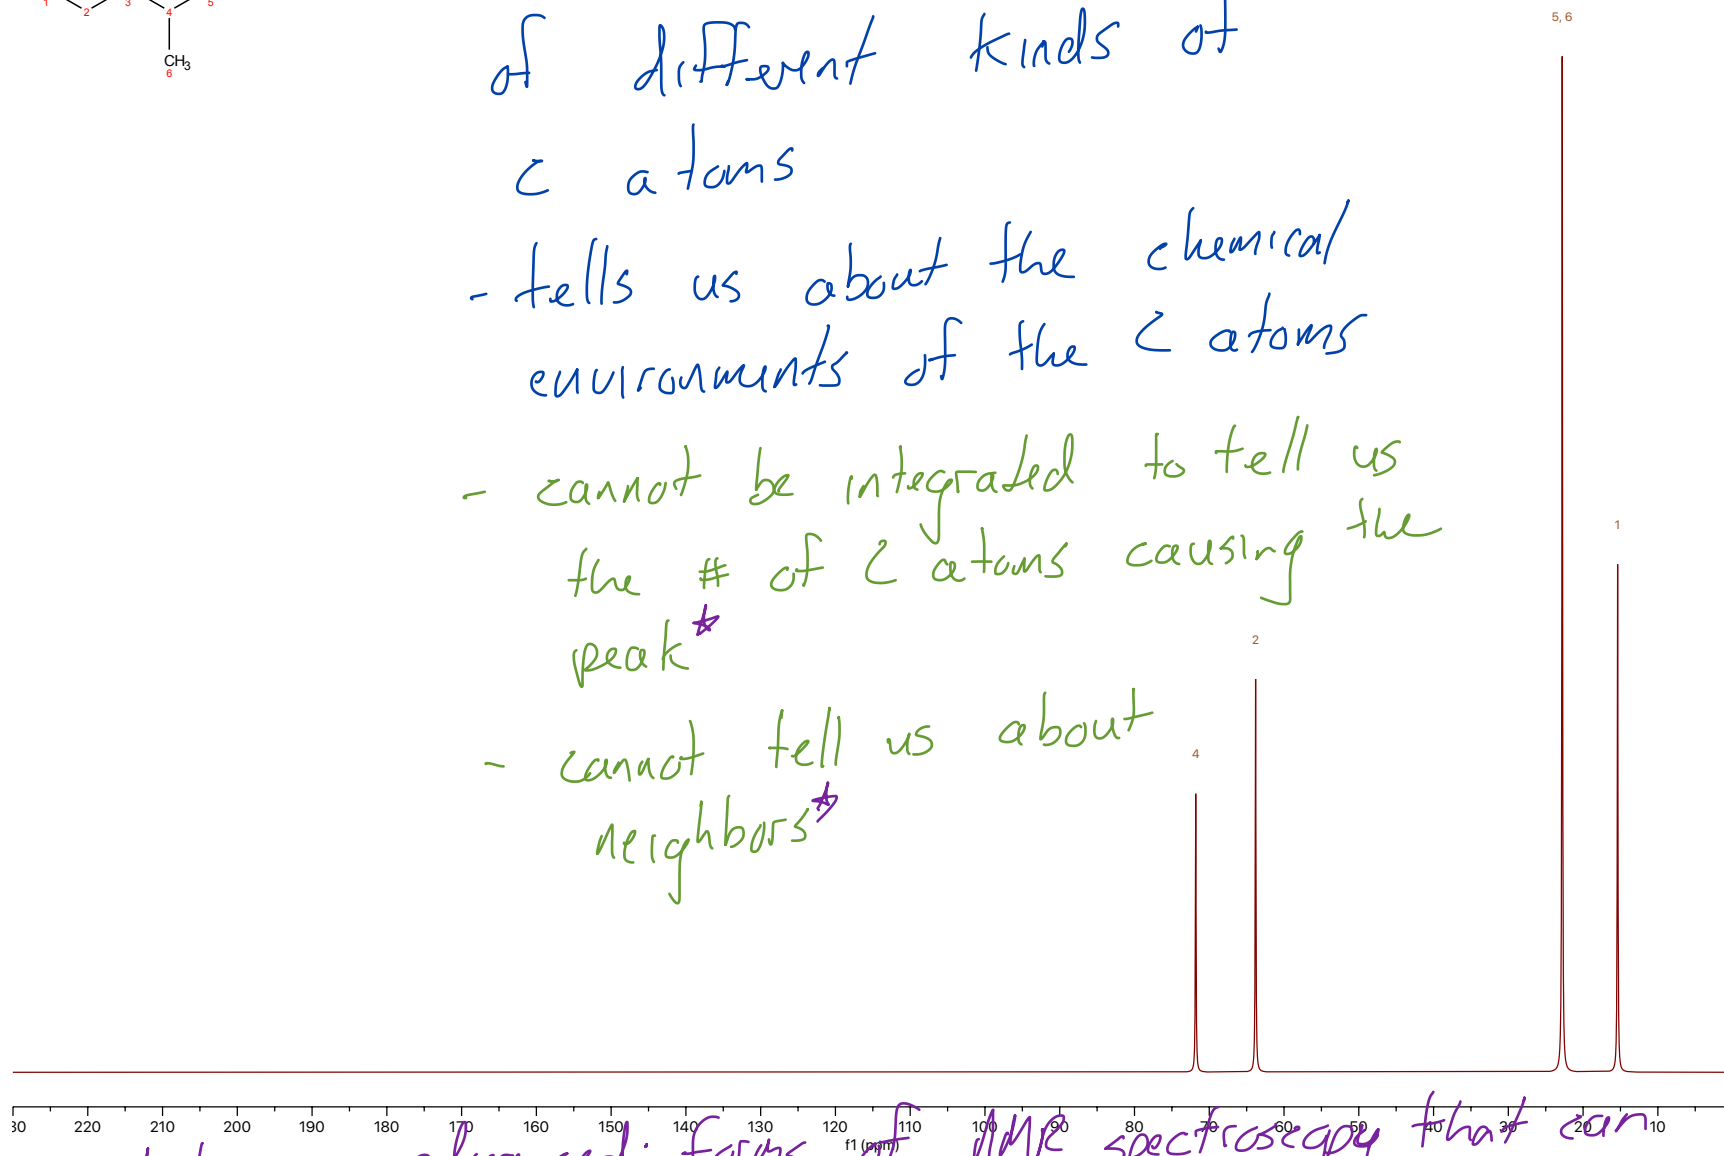 1 2 3 4 5
CH3
6
5, 6
of different kinds of
C atoms
- tells us about the chemical
environments of the C atoms
- cannot be integrated to tell us
the # of C atoms causing the
peak*
- cannot tell us about
neighbors*
1
2
4
220 210 200 190 180 170 160 150 140 130 120 110 100 90 80 70 60 50 40 30 20 10
f1 (ppm)
forms of NMR spectroscopy that can